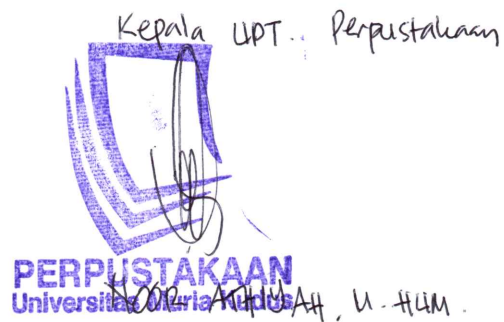 Kepala UPT. Perpustakaan
PERPUSTAKAAN
Universitas Muria Kudus
NOOR ATHIYAH, M.HUM.